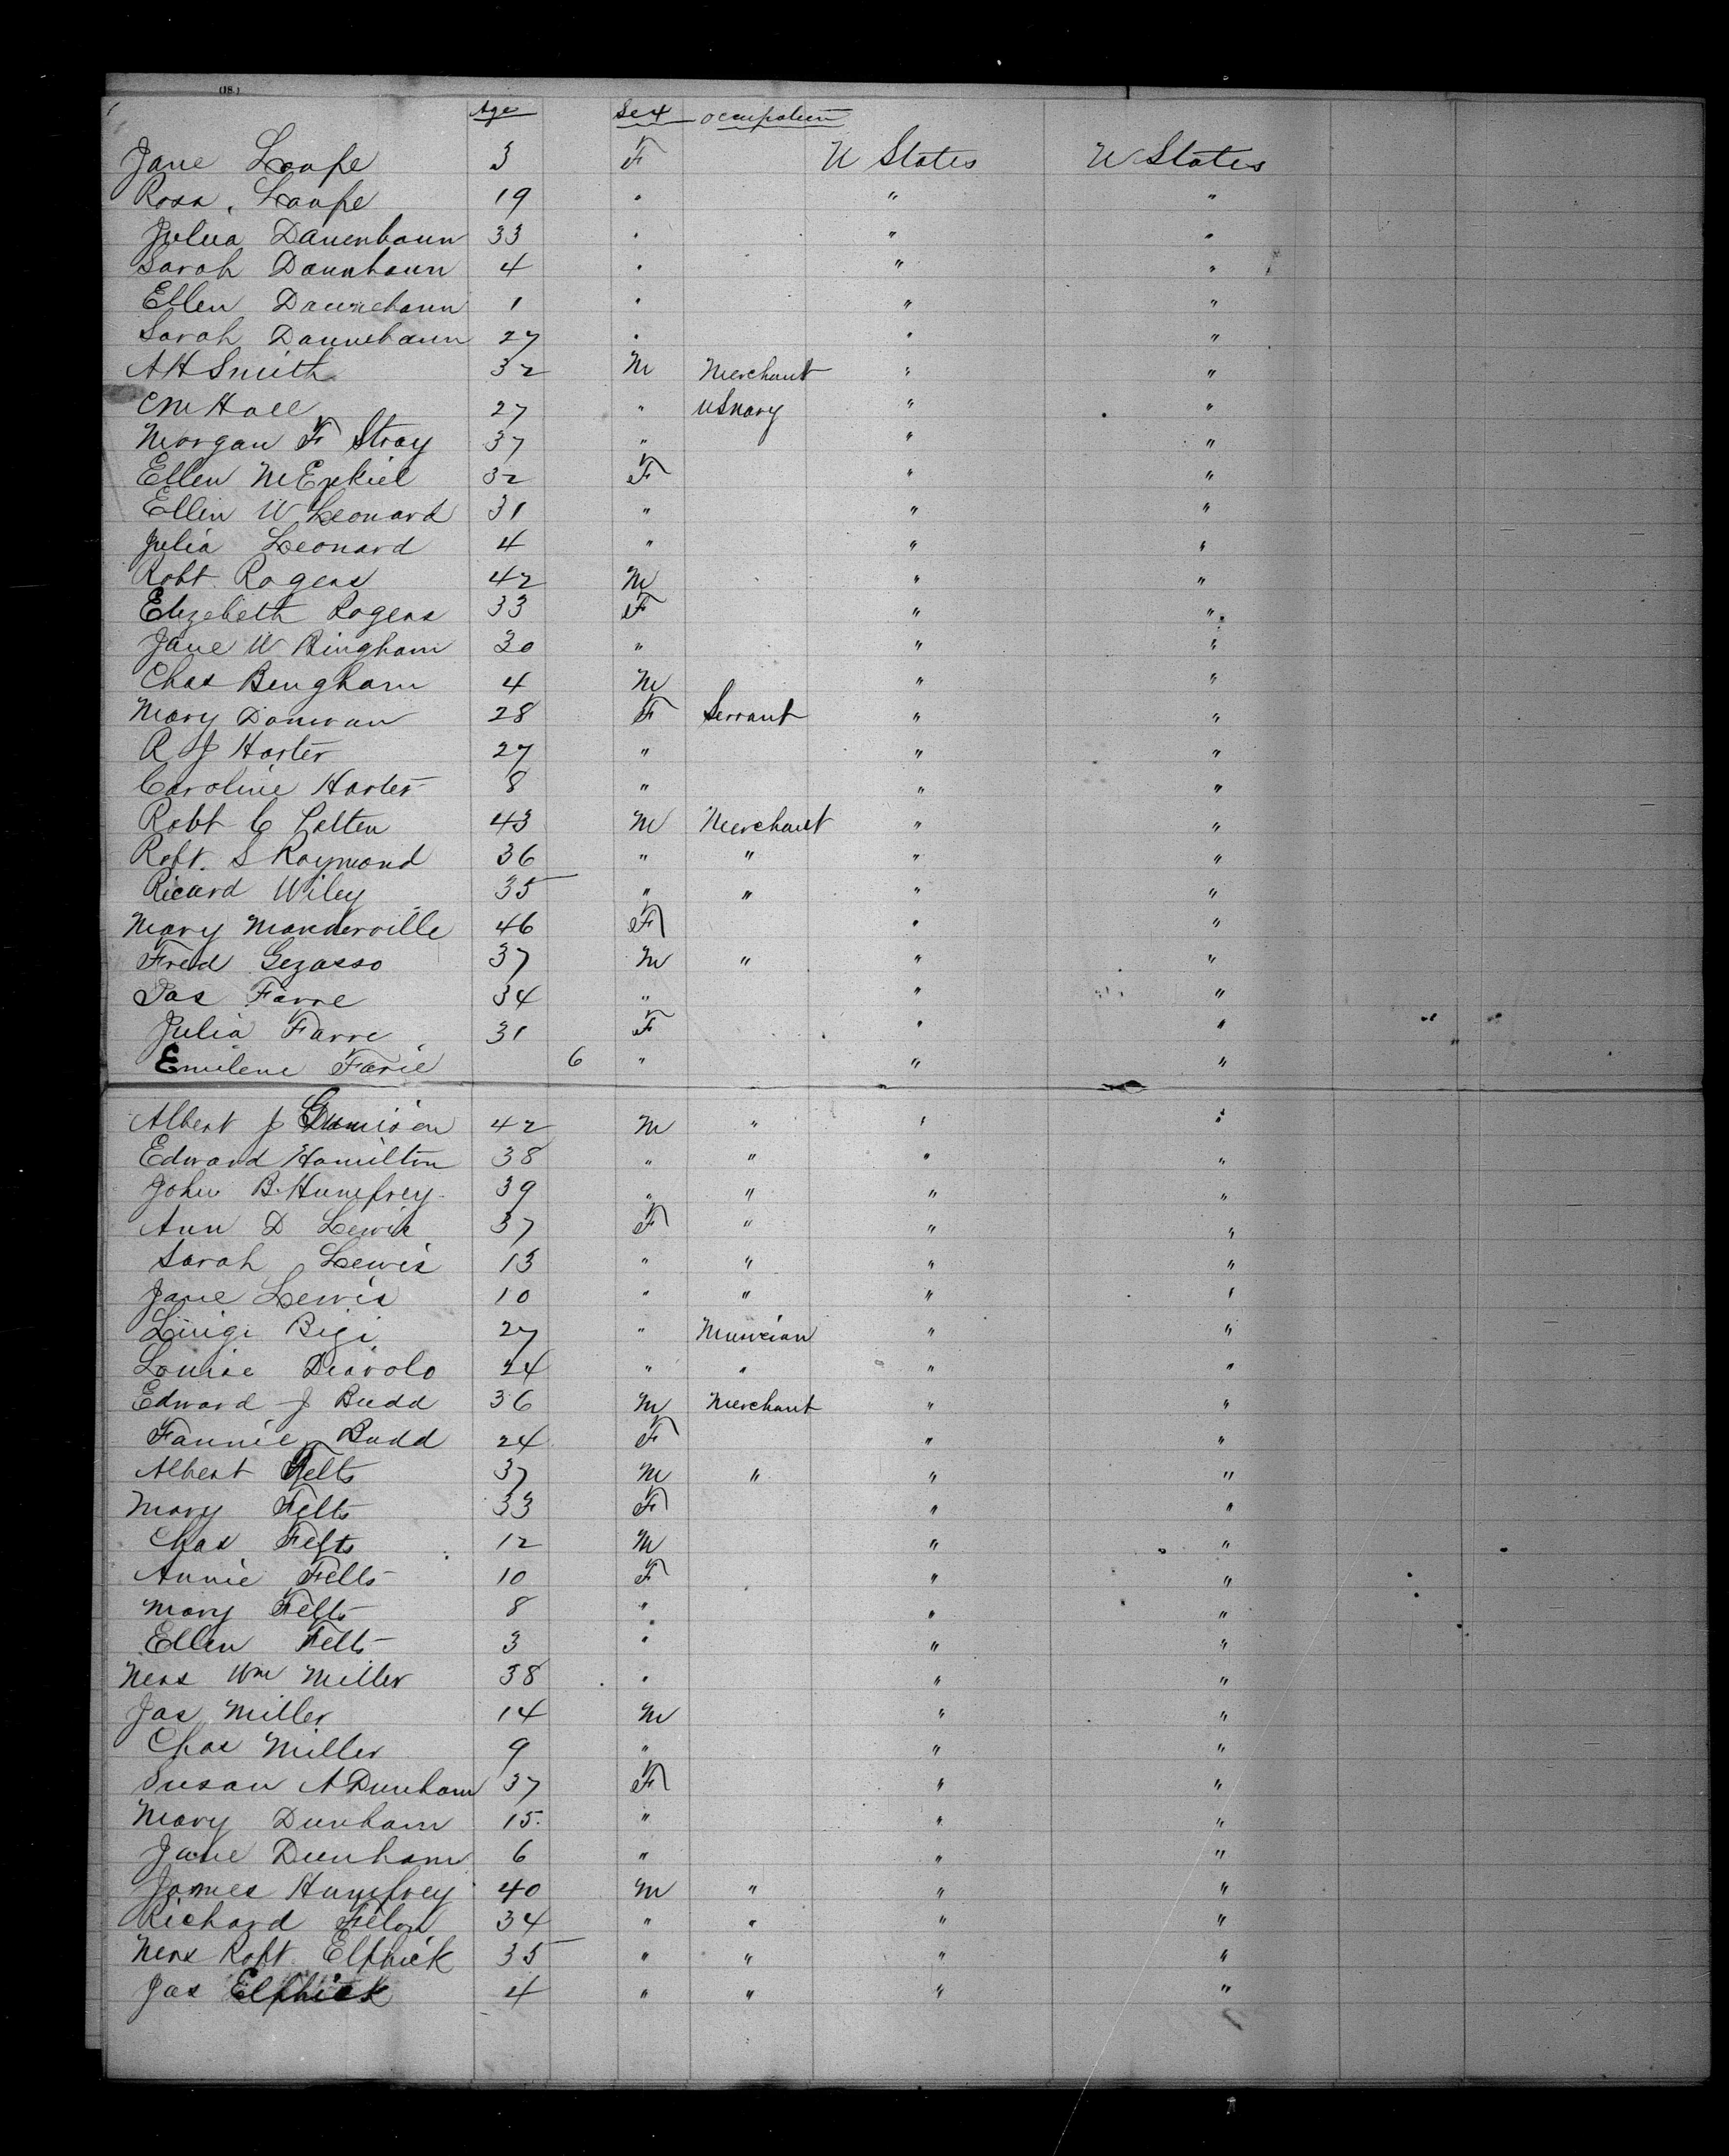 (18.)
Age Sex occupation
Jane Loupe 3 F U States U States
Rosa. Loupe 19 " " "
Julua Dauenbaun 33 " " "
Sarah Daunbaun 4 " " "
Ellen Daunebaun 1 " " "
Sarah Daunebaun 27 " " "
A H Smith 32 M Merchant " "
C M Hall 27 " U S navy " "
Morgan F Stray 37 " " "
Ellen M Ezekiel 32 F " "
Ellen W Leonard 31 " " "
Julia Leonard 4 " " "
Robt. Rogers 42 M " "
Elizebeth Rogers 33 F " "
Jane W Bingham 30 " " "
Chas Bingham 4 M " "
Mary Donivan 28 F Servant " "
R J Harter 27 " " "
Caroline Harter 8 " " "
Robt C Patten 43 M Merchant " "
Robt. S Raymond 36 " " " "
Ricard Wiley 35 " " " "
Mary Manderville 46 F " "
Fred Gezasso 37 M " " "
Jas Farre 34 " " "
Julia Farre 31 F " "
Emilene Farie 6 " " "
Albert J 42 M " " "
Edward Hamilton 38 " " " "
John B. Humfrey 39 " " " "
Ann D Lewis 37 F " " "
Sarah Lewis 13 " " " "
Jane Lewis 10 " " " "
Luigi Bigi 27 " Musician " "
Louise Diavolo 24 " " " "
Edward J Budd 36 M Merchant " "
Fannie Budd 24 F " "
Albert Felts 37 M " " "
Mary Felts 33 F " "
Chas Felts 12 M " "
Annie Felts 10 F " "
Mary Felts 8 " " "
Ellen Felts 3 " " "
Mrs Wm Miller 38 " " "
Jas Miller 14 M " "
Chas Miller 9 " " "
Susan A Dunham 37 F " "
Mary Dunham 15. " " "
Jane Dunham 6 " " "
James Humfrey 40 M " " "
Richard 34 " " " "
Mrs Robt. Elphick 35 " " " "
Jas Elphick 4 " " " "